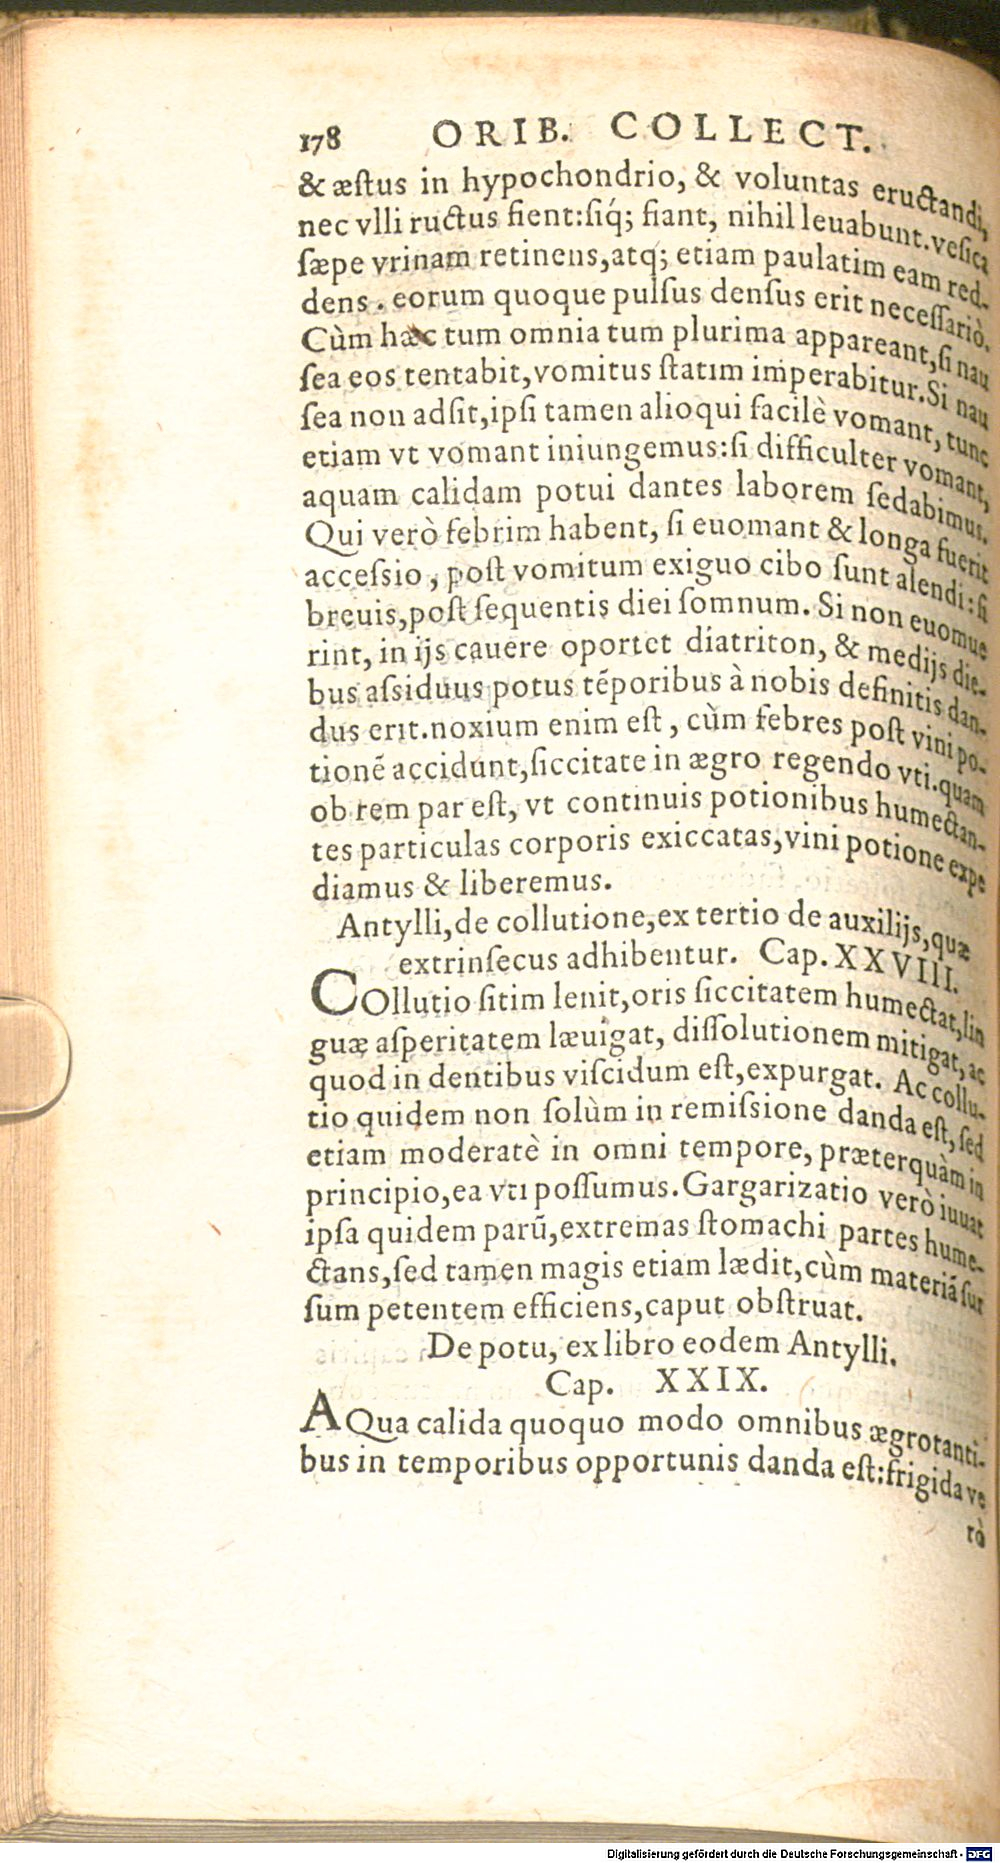 178 ORIB. COLLECT.
& æstus in hypochondrio, & voluntas eructandi,
nec vlli ructus fient:siq́; fiant, nihil leuabunt.vesica
sæpe vrinam retinens,atq; etiam paulatim eam red-
dens. eorum quoque pulsus densus erit necessariò.
Cùm hæc tum omnia tum plurima appareant,si nau
sea eos tentabit,vomitus statim imperabitur.Si nau
sea non adsit,ipsi tamen alioqui facilè vomant, tunc
etiam vt vomant iniungemus:si difficulter vomant,
aquam calidam potui dantes laborem sedabimus.
Qui verò febrim habent, si euomant & longa fuerit
accessio, post vomitum exiguo cibo sunt alendi:si
breuis,post sequentis diei somnum. Si non euomue
rint, in ijs cauere oportet diatriton, & medijs die-
bus assiduus potus tẽporibus à nobis definitis dan-
dus erit.noxium enim est, cùm febres post vini po-
tionẽ accidunt,siccitate in ægro regendo vti.quam
ob rem par est, vt continuis potionibus humectan-
tes particulas corporis exiccatas,vini potione expe
diamus & liberemus.
Antylli,de collutione,ex tertio de auxilijs,quæ
extrinsecus adhibentur. Cap. XXVIII.
COllutio sitim lenit,oris siccitatem humectat,lin
guæ asperitatem læuigat, dissolutionem mitigat, ac
quod in dentibus viscidum est,expurgat. Ac collu-
tio quidem non solùm in remissione danda est, sed
etiam moderatè in omni tempore, præterquàm in
principio,ea vti possumus.Gargarizatio verò iuuat
ipsa quidem parũ,extremas stomachi partes hume-
ctans,sed tamen magis etiam lædit,cùm materiã sur
sum petentem efficiens,caput obstruat.
De potu, ex libro eodem Antylli.
Cap. XXIX.
AQua calida quoquo modo omnibus ægrotanti-
bus in temporibus opportunis danda est:frigida ve
rò
Digitalisierung gefördert durch die Deutsche Forschungsgemeinschaft - DFG